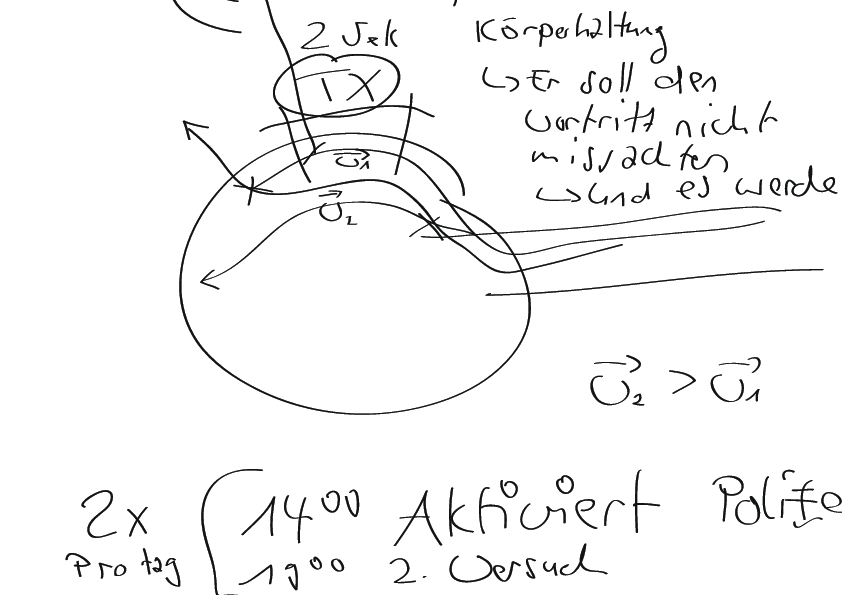 2 Sek
1X
Körperhaltung
↳ Er soll den
Vortritt nicht
missachten
↳ Und es werde
v₁
v₂
v₂ > v₁
2x
Pro tag
14⁰⁰ Aktiviert
19⁰⁰ 2. Versuch